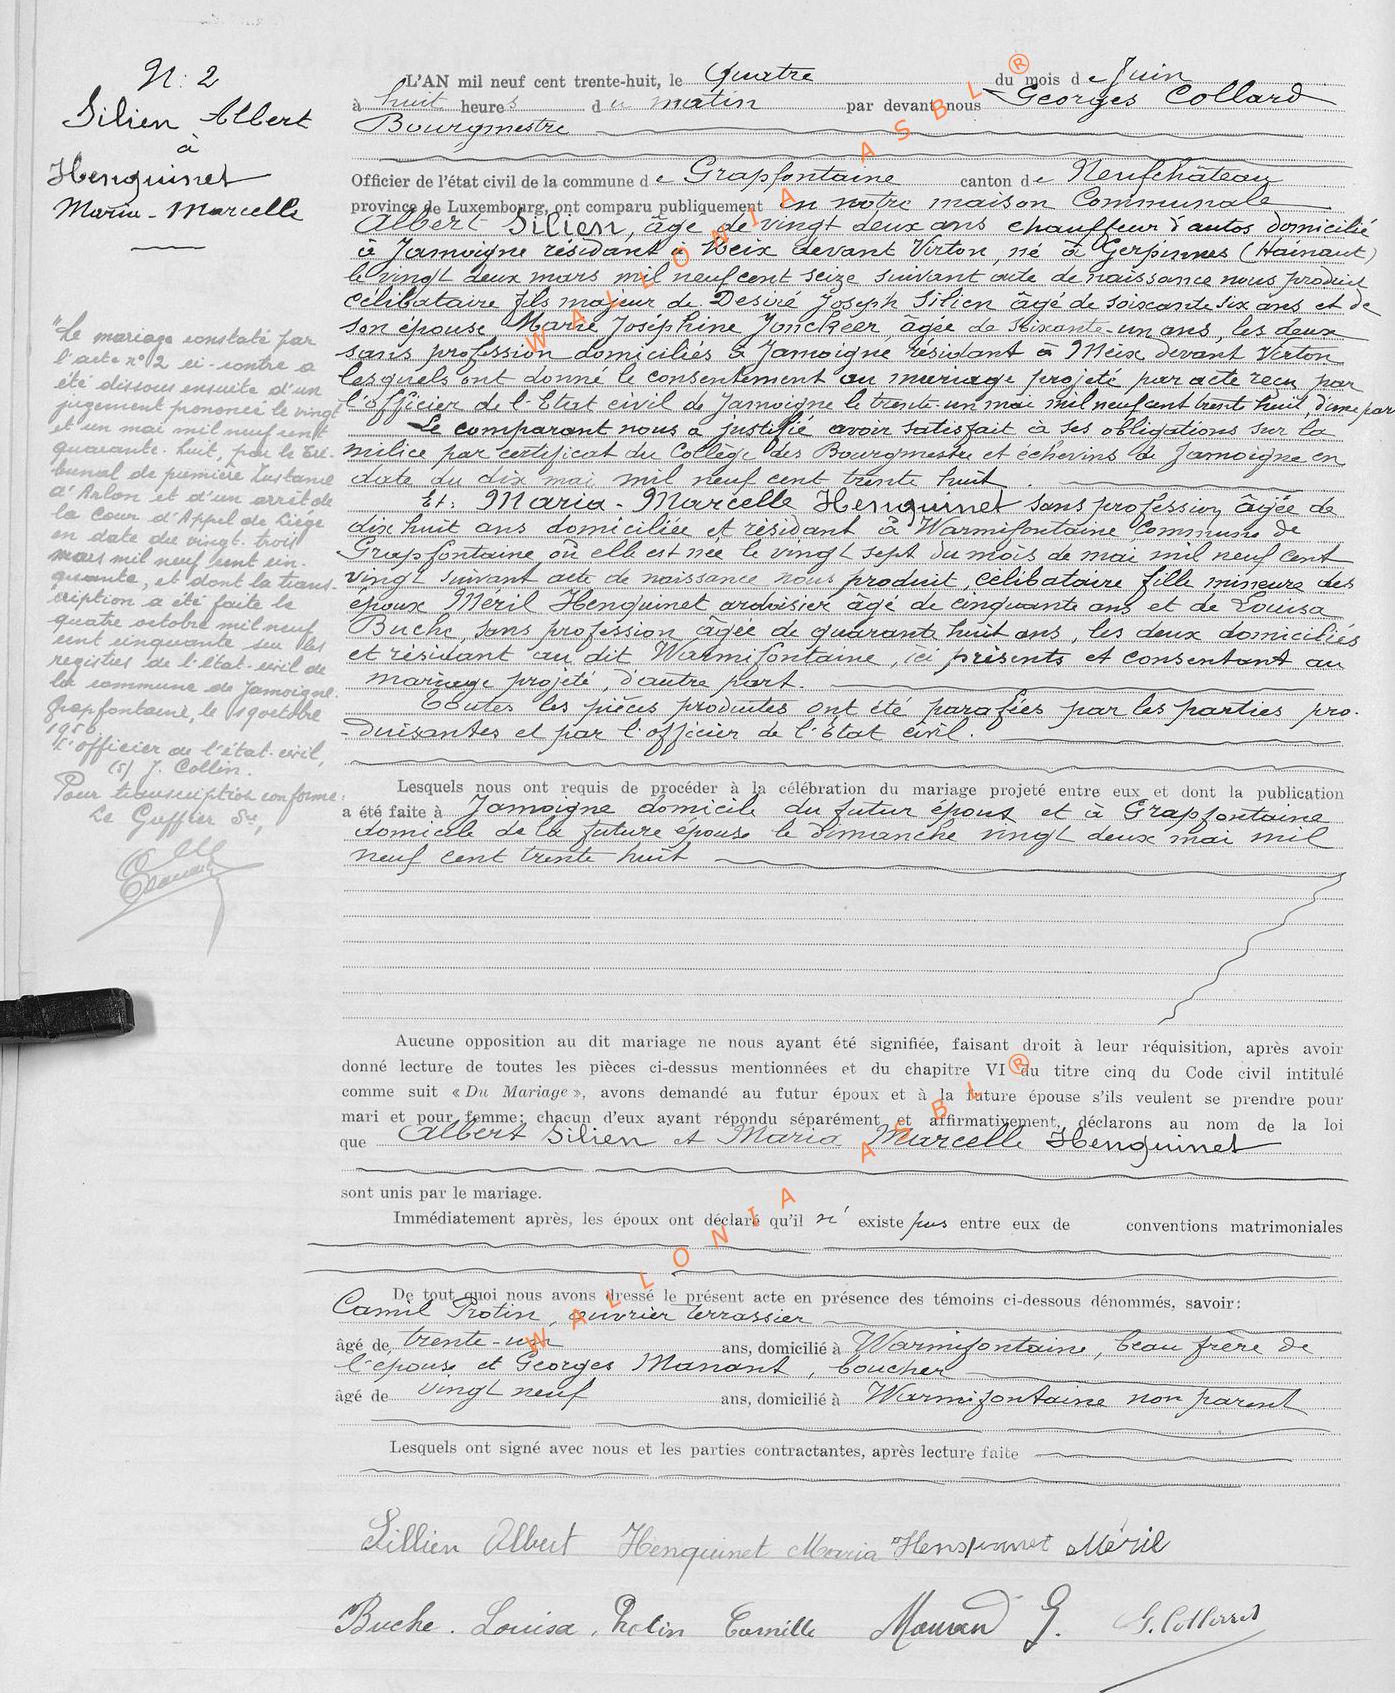 N: 2
Silien Albert
à
Henquinet
Maria - Marcelle
"Le mariage constaté par
l'acte n° 2 ci-contre a
été dissous ensuite d'un
jugement prononcé le vingt
et un mai mil neuf cent
quarante-huit, par le Tri-
bunal de première Instance
d'Arlon et d'un arrêt de
la Cour d'Appel de Liége
en date du vingt-trois
mars mil neuf cent cin-
quante, et dont la trans-
cription a été faite le
quatre octobre mil neuf
cent cinquante sur les
registres de l'état-civil de
la commune de Jamoigne.
Grapfontaine, le 19 octobre
1950
L'officier de l'état-civil,
(s) J. Collin.
Pour transcription conforme:
Le Greffier
L'AN mil neuf cent trente-huit, le Quatre du mois de Juin
à huit heures du matin par devant nous Georges Collard
Bourgmestre
Officier de l'état civil de la commune de Grapfontaine canton de Neufchâteau
province de Luxembourg, ont comparu publiquement en notre maison Communale
Albert Silien, âgé de vingt deux ans chauffeur d'autos domicilié
à Jamoigne résidant à Meix devant Virton, né à Gerpinnes (Hainaut)
le vingt deux mars mil neuf cent seize suivant acte de naissance nous produit
célibataire fils majeur de Desiré Joseph Silien âgé de soixante six ans et de
son épouse Marie Joséphine Jonckeer, âgée de soixante-un ans, les deux
sans profession domiciliés à Jamoigne résidant à Meix devant Virton
lesquels ont donné le consentement au mariage projeté par acte reçu par
l'officier de l'Etat civil de Jamoigne le trente-un mai mil neuf cent trente huit, d'une part
Le comparant nous a justifié avoir satisfait à ses obligations sur la
milice par certificat du Collège des Bourgmestre et échevins de Jamoigne en
date du dix mai mil neuf cent trente huit.
Et: Maria - Marcelle Henquinet sans profession, âgée de
dix huit ans domiciliée et résidant à Warmifontaine Commune de
Grapfontaine où elle est née le vingt sept du mois de mai mil neuf cent
vingt suivant acte de naissance nous produit, célibataire fille mineure des
époux Méril Henquinet ardoisier âgé de cinquante ans et de Louisa
Buche, sans profession âgée de quarante huit ans, les deux domiciliés
et résidant au dit Warmifontaine, ici présents et consentant au
mariage projeté, d'autre part.
Toutes les pièces produites ont été parafées par les parties pro-
-duisantes et par l'officier de l'Etat civil.
Lesquels nous ont requis de procéder à la célébration du mariage projeté entre eux et dont la publication
a été faite à Jamoigne domicile du futur époux et à Grapfontaine
domicile de la future épouse le dimanche vingt deux mai mil
neuf cent trente huit
Aucune opposition au dit mariage ne nous ayant été signifiée, faisant droit à leur réquisition, après avoir
donné lecture de toutes les pièces ci-dessus mentionnées et du chapitre VI du titre cinq du Code civil intitulé
comme suit « Du Mariage », avons demandé au futur époux et à la future épouse s'ils veulent se prendre pour
mari et pour femme; chacun d'eux ayant répondu séparément et affirmativement, déclarons au nom de la loi
que Albert Silien et Maria Marcelle Henquinet
sont unis par le mariage.
Immédiatement après, les époux ont déclaré qu'il n' existe pas entre eux de conventions matrimoniales
De tout quoi nous avons dressé le présent acte en présence des témoins ci-dessous dénommés, savoir:
Camil Protin, ouvrier terrassier
âgé de trente-un ans, domicilié à Warmifontaine, beau frère de
l'épouse et Georges Manant, boucher
âgé de vingt neuf ans, domicilié à Warmifontaine non parent
Lesquels ont signé avec nous et les parties contractantes, après lecture faite
Sillien Albert Henquinet Maria Henquinet Méril
Buche. Louisa. Protin Camille Manand G. G. Collard
WALLONIA ASBL®
WALLONIA ASBL®